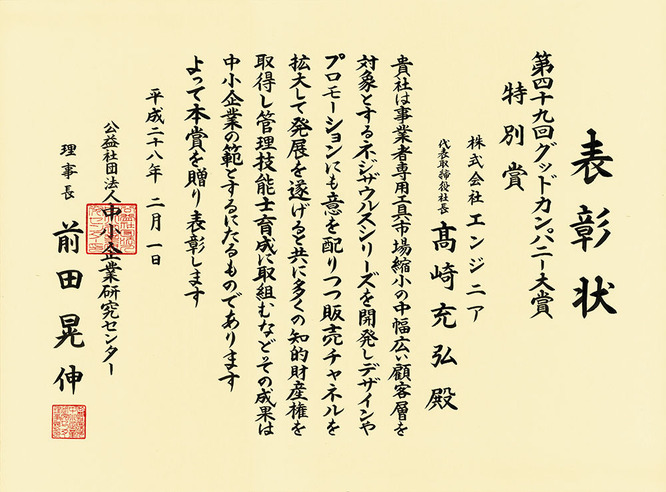 表彰状
第四十九回グッドカンパニー大賞
特別賞
株式会社 エンジニア
代表取締役社長 髙崎充弘殿
貴社は事業者専用工具市場縮小の中幅広い顧客層を
対象とするネジザウルスシリーズを開発しデザインや
プロモーションにも意を配りつつ販売チャネルを
拡大して発展を遂げると共に多くの知的財産権を
取得し管理技能士育成に取組むなどその成果は
中小企業の範とするにたるものであります
よって本賞を贈り表彰します
平成二十八年 二月一日
公益社団法人中小企業研究センター
理事長 前田晃伸